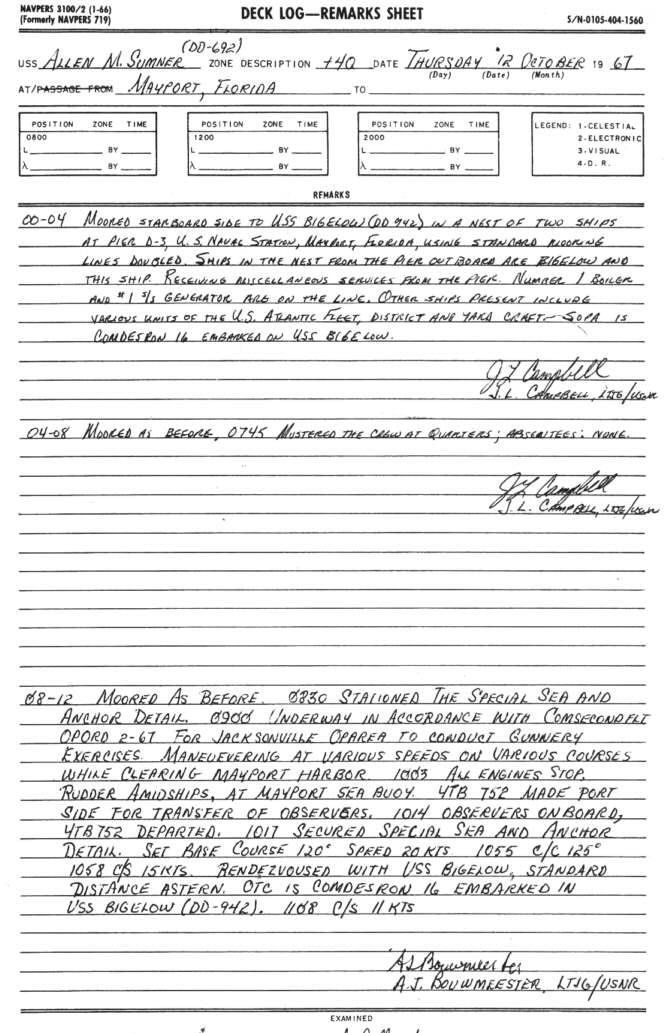 NAVPERS 3100/2 (1-66)
(Formerly NAVPERS 719)
DECK LOG—REMARKS SHEET
S/N-0105-404-1560
USS ALLEN M. SUMNER (DD-692) ZONE DESCRIPTION +4Q DATE THURSDAY 12 OCTOBER 1967
(Day) (Date) (Month)
AT/PASSAGE FROM MAYPORT, FLORIDA TO
POSITION ZONE TIME
0800
L BY
λ BY
POSITION ZONE TIME
1200
L BY
λ BY
POSITION ZONE TIME
2000
L BY
λ BY
LEGEND: 1-CELESTIAL
2-ELECTRONIC
3-VISUAL
4-D. R.
REMARKS
00-04 MOORED STARBOARD SIDE TO USS BIGELOW (DD 942) IN A NEST OF TWO SHIPS
AT PIER D-3, U.S. NAVAL STATION, MAYPORT, FLORIDA, USING STANDARD MOORING
LINES DOUBLED. SHIPS IN THE NEST FROM THE PIER OUTBOARD ARE BIGELOW AND
THIS SHIP. RECEIVING MISCELLANEOUS SERVICES FROM THE PIER. NUMBER 1 BOILER
AND #1 S/S GENERATOR ARE ON THE LINE. OTHER SHIPS PRESENT INCLUDE
VARIOUS UNITS OF THE U.S. ATLANTIC FLEET, DISTRICT AND YARD CRAFT. SOPA IS
COMDESRON 16 EMBARKED ON USS BIGELOW.
JL Campbell
J.L. CAMPBELL, LTJG/USNR
04-08 MOORED AS BEFORE, 0745 MUSTERED THE CREW AT QUARTERS; ABSENTEES: NONE.
JL Campbell
J.L. CAMPBELL, LTJG/USNR
08-12 MOORED AS BEFORE. 0830 STATIONED THE SPECIAL SEA AND
ANCHOR DETAIL. 0900 UNDERWAY IN ACCORDANCE WITH COMSECONDFLT
OPORD 2-67 FOR JACKSONVILLE OPAREA TO CONDUCT GUNNERY
EXERCISES. MANEUEVERING AT VARIOUS SPEEDS ON VARIOUS COURSES
WHILE CLEARING MAYPORT HARBOR. 1003 ALL ENGINES STOP,
RUDDER AMIDSHIPS, AT MAYPORT SEA BUOY. YTB 752 MADE PORT
SIDE FOR TRANSFER OF OBSERVERS. 1014 OBSERVERS ONBOARD,
YTB752 DEPARTED. 1017 SECURED SPECIAL SEA AND ANCHOR
DETAIL. SET BASE COURSE 120° SPEED 20 KTS 1055 C/C 125°
1058 C/S 15 KTS. RENDEZVOUSED WITH USS BIGELOW, STANDARD
DISTANCE ASTERN. OTC IS COMDESRON 16 EMBARKED IN
USS BIGELOW (DD-942). 1108 C/S 11 KTS
AJ Bouwmeester
A.J. BOUWMEESTER, LTJG/USNR
EXAMINED